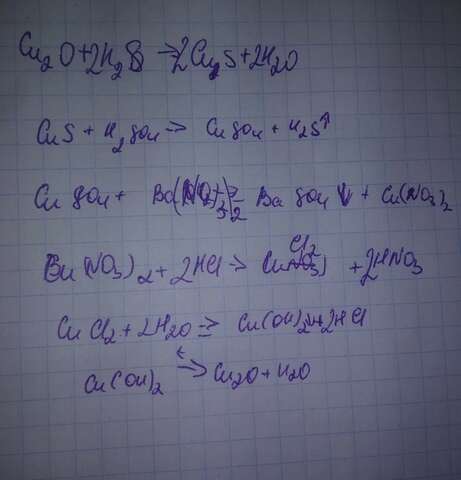 Cu2O+2H2S→2Cu2S+2H2O
CuS + H2SO4 => CuSO4 + H2S↑
CuSO4 + Ba(NO3)2 => BaSO4↓ + Cu(NO3)2
Cu(NO3)2+2HCl→CuCl2+2HNO3
CuCl2+2H2O => Cu(OH)2+2HCl
Cu(OH)2 t=> Cu2O+H2O